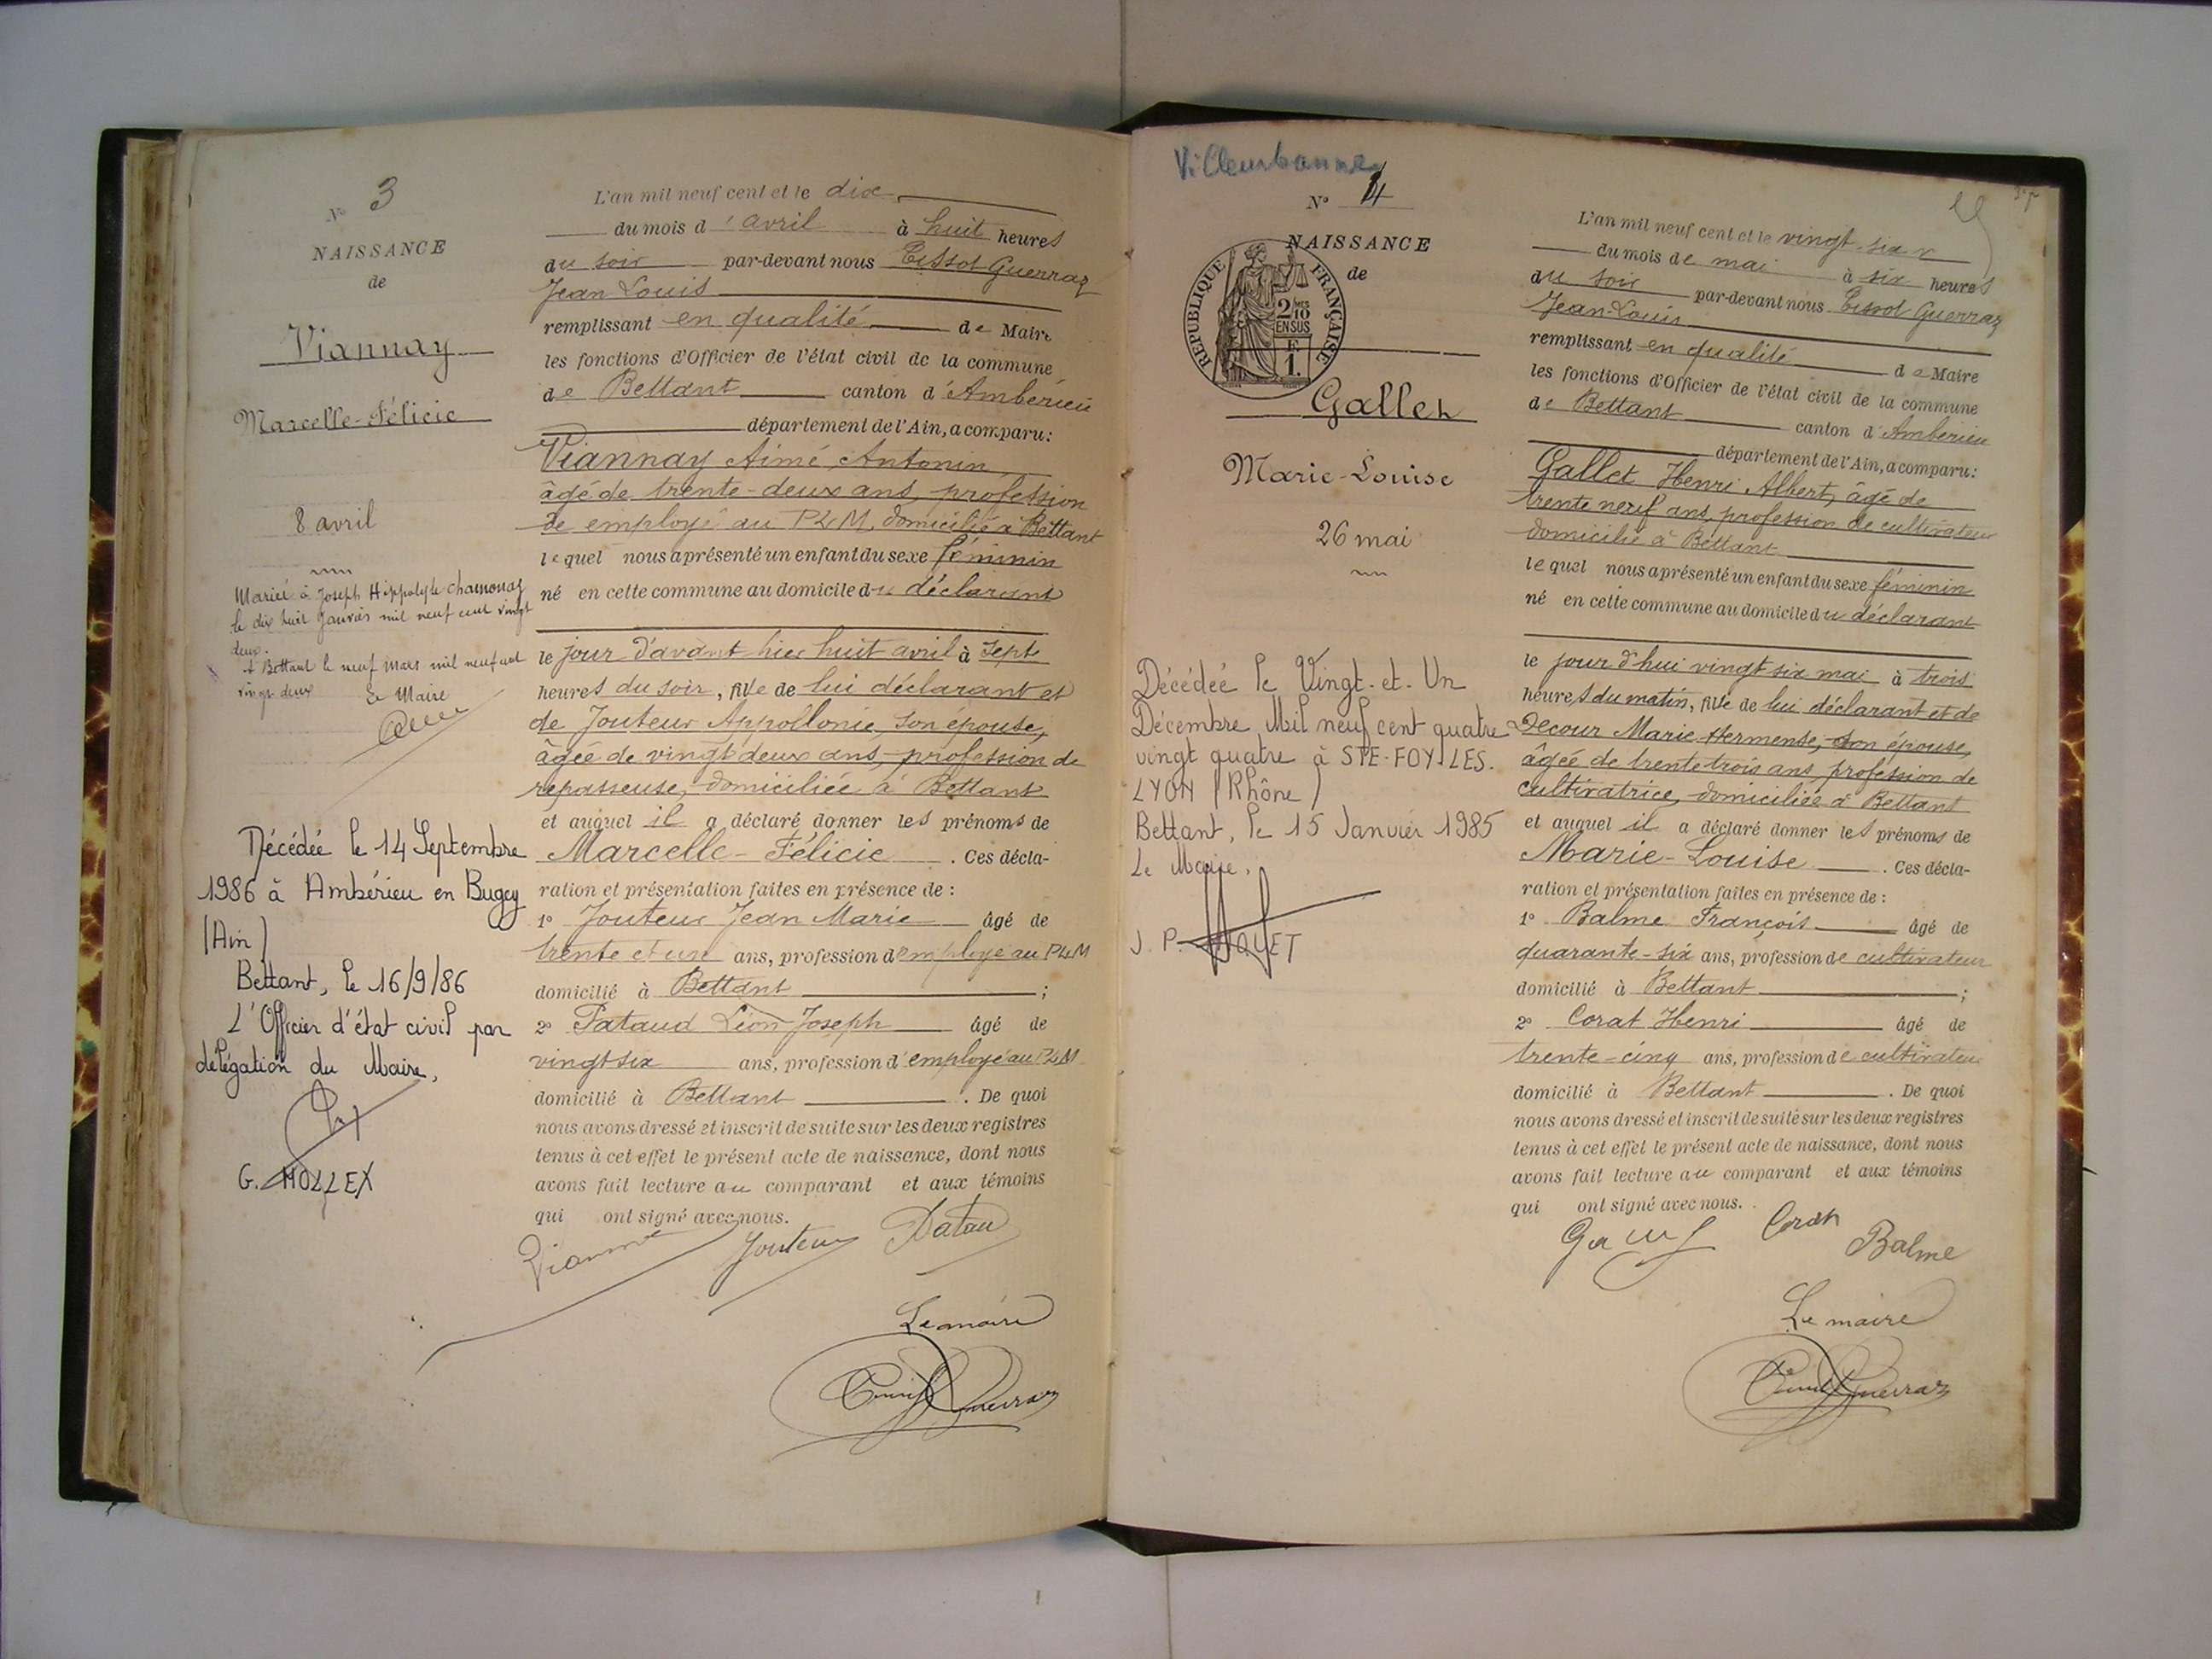 N° 3
NAISSANCE
de
Viannay
Marcelle-Félicie
8 avril
Mariée à Joseph Hippolyte Chamonaz
le dix huit Janvier mil neuf cent vingt
deux.
A Bettant le neuf Mars mil neuf cent
vingt deux Le Maire
Décédée le 14 Septembre
1986 à Ambérieu en Bugey
(Ain)
Bettant, le 16/9/86
L'Officier d'état civil par
délégation du Maire,
G. MOLLEX
L'an mil neuf cent et le dix
du mois d'avril à huit heures
du soir par-devant nous Tissot Guerraz
Jean Louis
remplissant en qualité de Maire
les fonctions d'Officier de l'état civil de la commune
de Bettant canton d'Ambérieu
département de l'Ain, a comparu:
Viannay Aimé Antonin
âgé de trente-deux ans, profession
de employé au PLM, domicilié à Bettant
lequel nous a présenté un enfant du sexe féminin
né en cette commune au domicile du déclarant
le jour d'avant hier huit avril à sept
heures du soir, fille de lui déclarant et
de Jouteur Appollonie, son épouse,
âgée de vingt deux ans, profession de
repasseuse, domiciliée à Bettant
et auquel il a déclaré donner les prénoms de
Marcelle-Félicie. Ces décla-
ration et présentation faites en présence de :
1° Jouteur Jean Marie âgé de
trente et un ans, profession d'employé au PLM
domicilié à Bettant ;
2° Pataud Léon Joseph âgé de
vingt six ans, profession d'employé au PLM
domicilié à Bettant. De quoi
nous avons dressé et inscrit de suite sur les deux registres
tenus à cet effet le présent acte de naissance, dont nous
avons fait lecture au comparant et aux témoins
qui ont signé avec nous.
Jouteur
Le maire
Villeurbanne
N° 4
NAISSANCE
de
RÉPUBLIQUE FRANÇAISE
2/10
EN SUS
F.
1.
Gallet
Marie-Louise
26 mai
Décédée le Vingt-et-Un
Décembre Mil neuf cent quatre
vingt quatre à STE-FOY-LES-
LYON (Rhône)
Bettant, le 15 Janvier 1985
Le Maire.
L'an mil neuf cent et le vingt-six
du mois de mai à six heures
du soir par-devant nous Tissot Guerraz
Jean-Louis
remplissant en qualité de Maire
les fonctions d'Officier de l'état civil de la commune
de Bettant canton d'Ambérieu
département de l'Ain, a comparu:
Gallet Henri Albert, âgé de
trente neuf ans, profession de cultivateur
domicilié à Bettant
lequel nous a présenté un enfant du sexe féminin
né en cette commune au domicile du déclarant
le jour d'hui vingt six mai à trois
heures du matin, fille de lui déclarant et de
Decour Marie Hermense, son épouse,
âgée de trente trois ans, profession de
cultivatrice, domiciliée à Bettant
et auquel il a déclaré donner les prénoms de
Marie-Louise. Ces décla-
ration et présentation faites en présence de :
1° Balme François âgé de
quarante-six ans, profession de cultivateur
domicilié à Bettant ;
2° Corat Henri âgé de
trente-cinq ans, profession de cultivateur
domicilié à Bettant. De quoi
nous avons dressé et inscrit de suite sur les deux registres
tenus à cet effet le présent acte de naissance, dont nous
avons fait lecture au comparant et aux témoins
qui ont signé avec nous.
Corat
Balme
Le maire